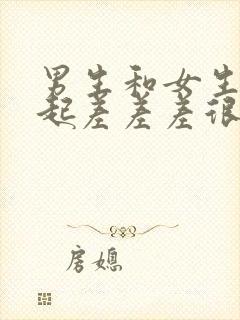 男生和女生
起差差差很
房媳